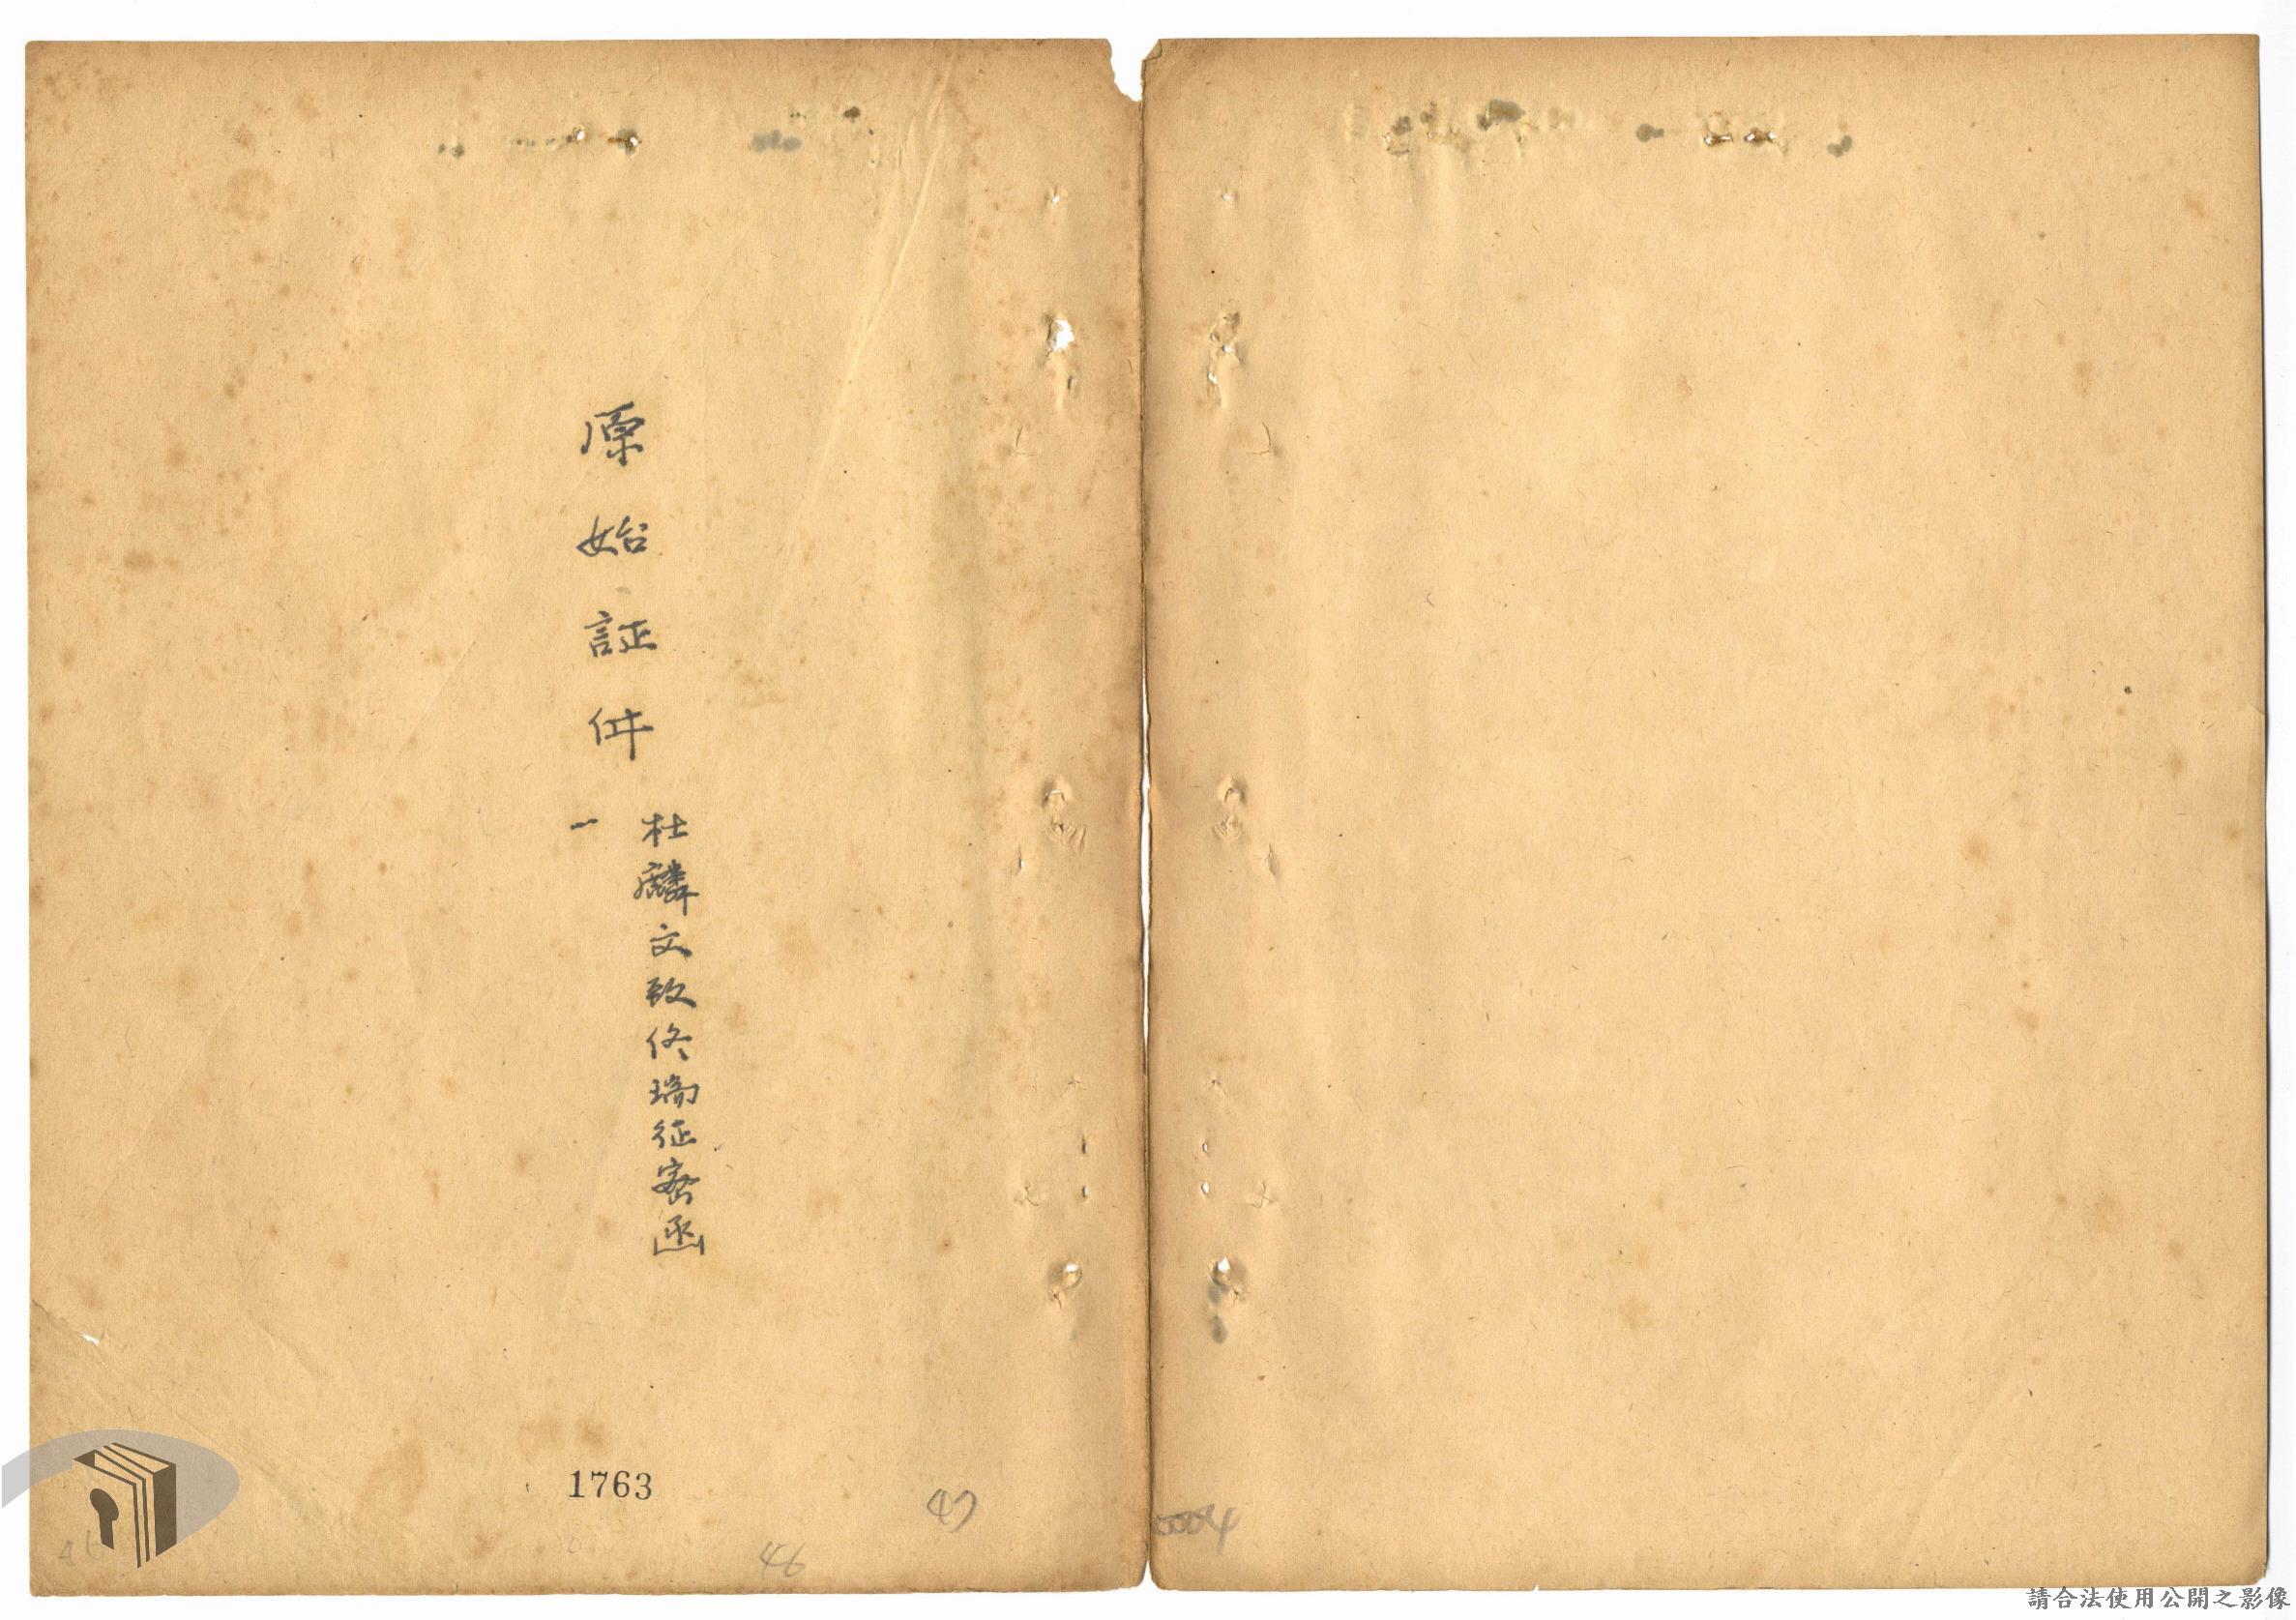 杜麟文致佟瑞征密函
原始証件
一
1763
47
46
46
請合法使用公開之影像